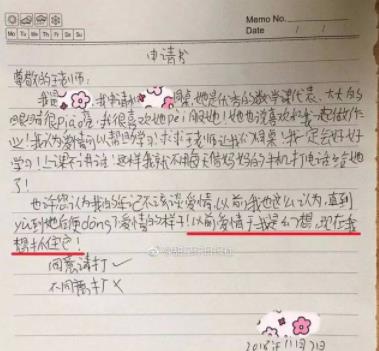 Memo No.
Mo Tu We Th Fr Sa Su
Date / /
申请书
尊敬的王老师:
我是 我申请和 同桌,她是优秀的数学课代表、大大的
眼睛很Piao亮,我很喜欢她pei服她!她也说喜欢和我一起做作
业!我认为爱情可以帮助学习!求求王老师让我们同桌!我一定会好好
学习!上课不讲话!这样我就不用每天偷妈妈的手机打电话给她
了!
也许您认为我的年纪不应该谈爱情,以前我也这么认为,直到
yù到她后便dǒng了爱情的样子!以前爱情于我是幻想,现在我
想抓住它!
同意请打✓
不同意打×
2018年11月7日